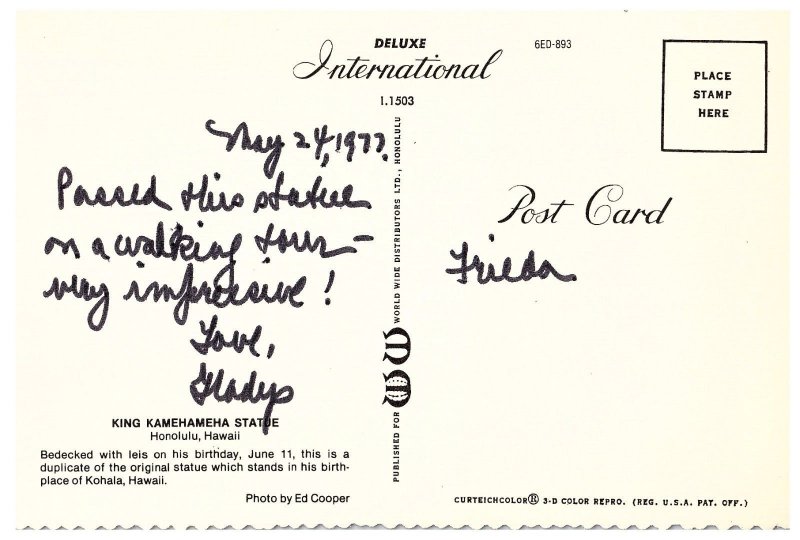 DELUXE
International
I.1503
6ED-893
PLACE
STAMP
HERE
May 24, 1977.
Passed this statue
on a walking tour -
very impressive!
Love,
Gladys
KING KAMEHAMEHA STATUE
Honolulu, Hawaii
Bedecked with leis on his birthday, June 11, this is a
duplicate of the original statue which stands in his birth-
place of Kohala, Hawaii.
Photo by Ed Cooper
PUBLISHED FOR WW WORLD WIDE DISTRIBUTORS LTD., HONOLULU
Post Card
Frieda
CURTEICHCOLOR® 3-D COLOR REPRO. (REG. U.S.A. PAT. OFF.)